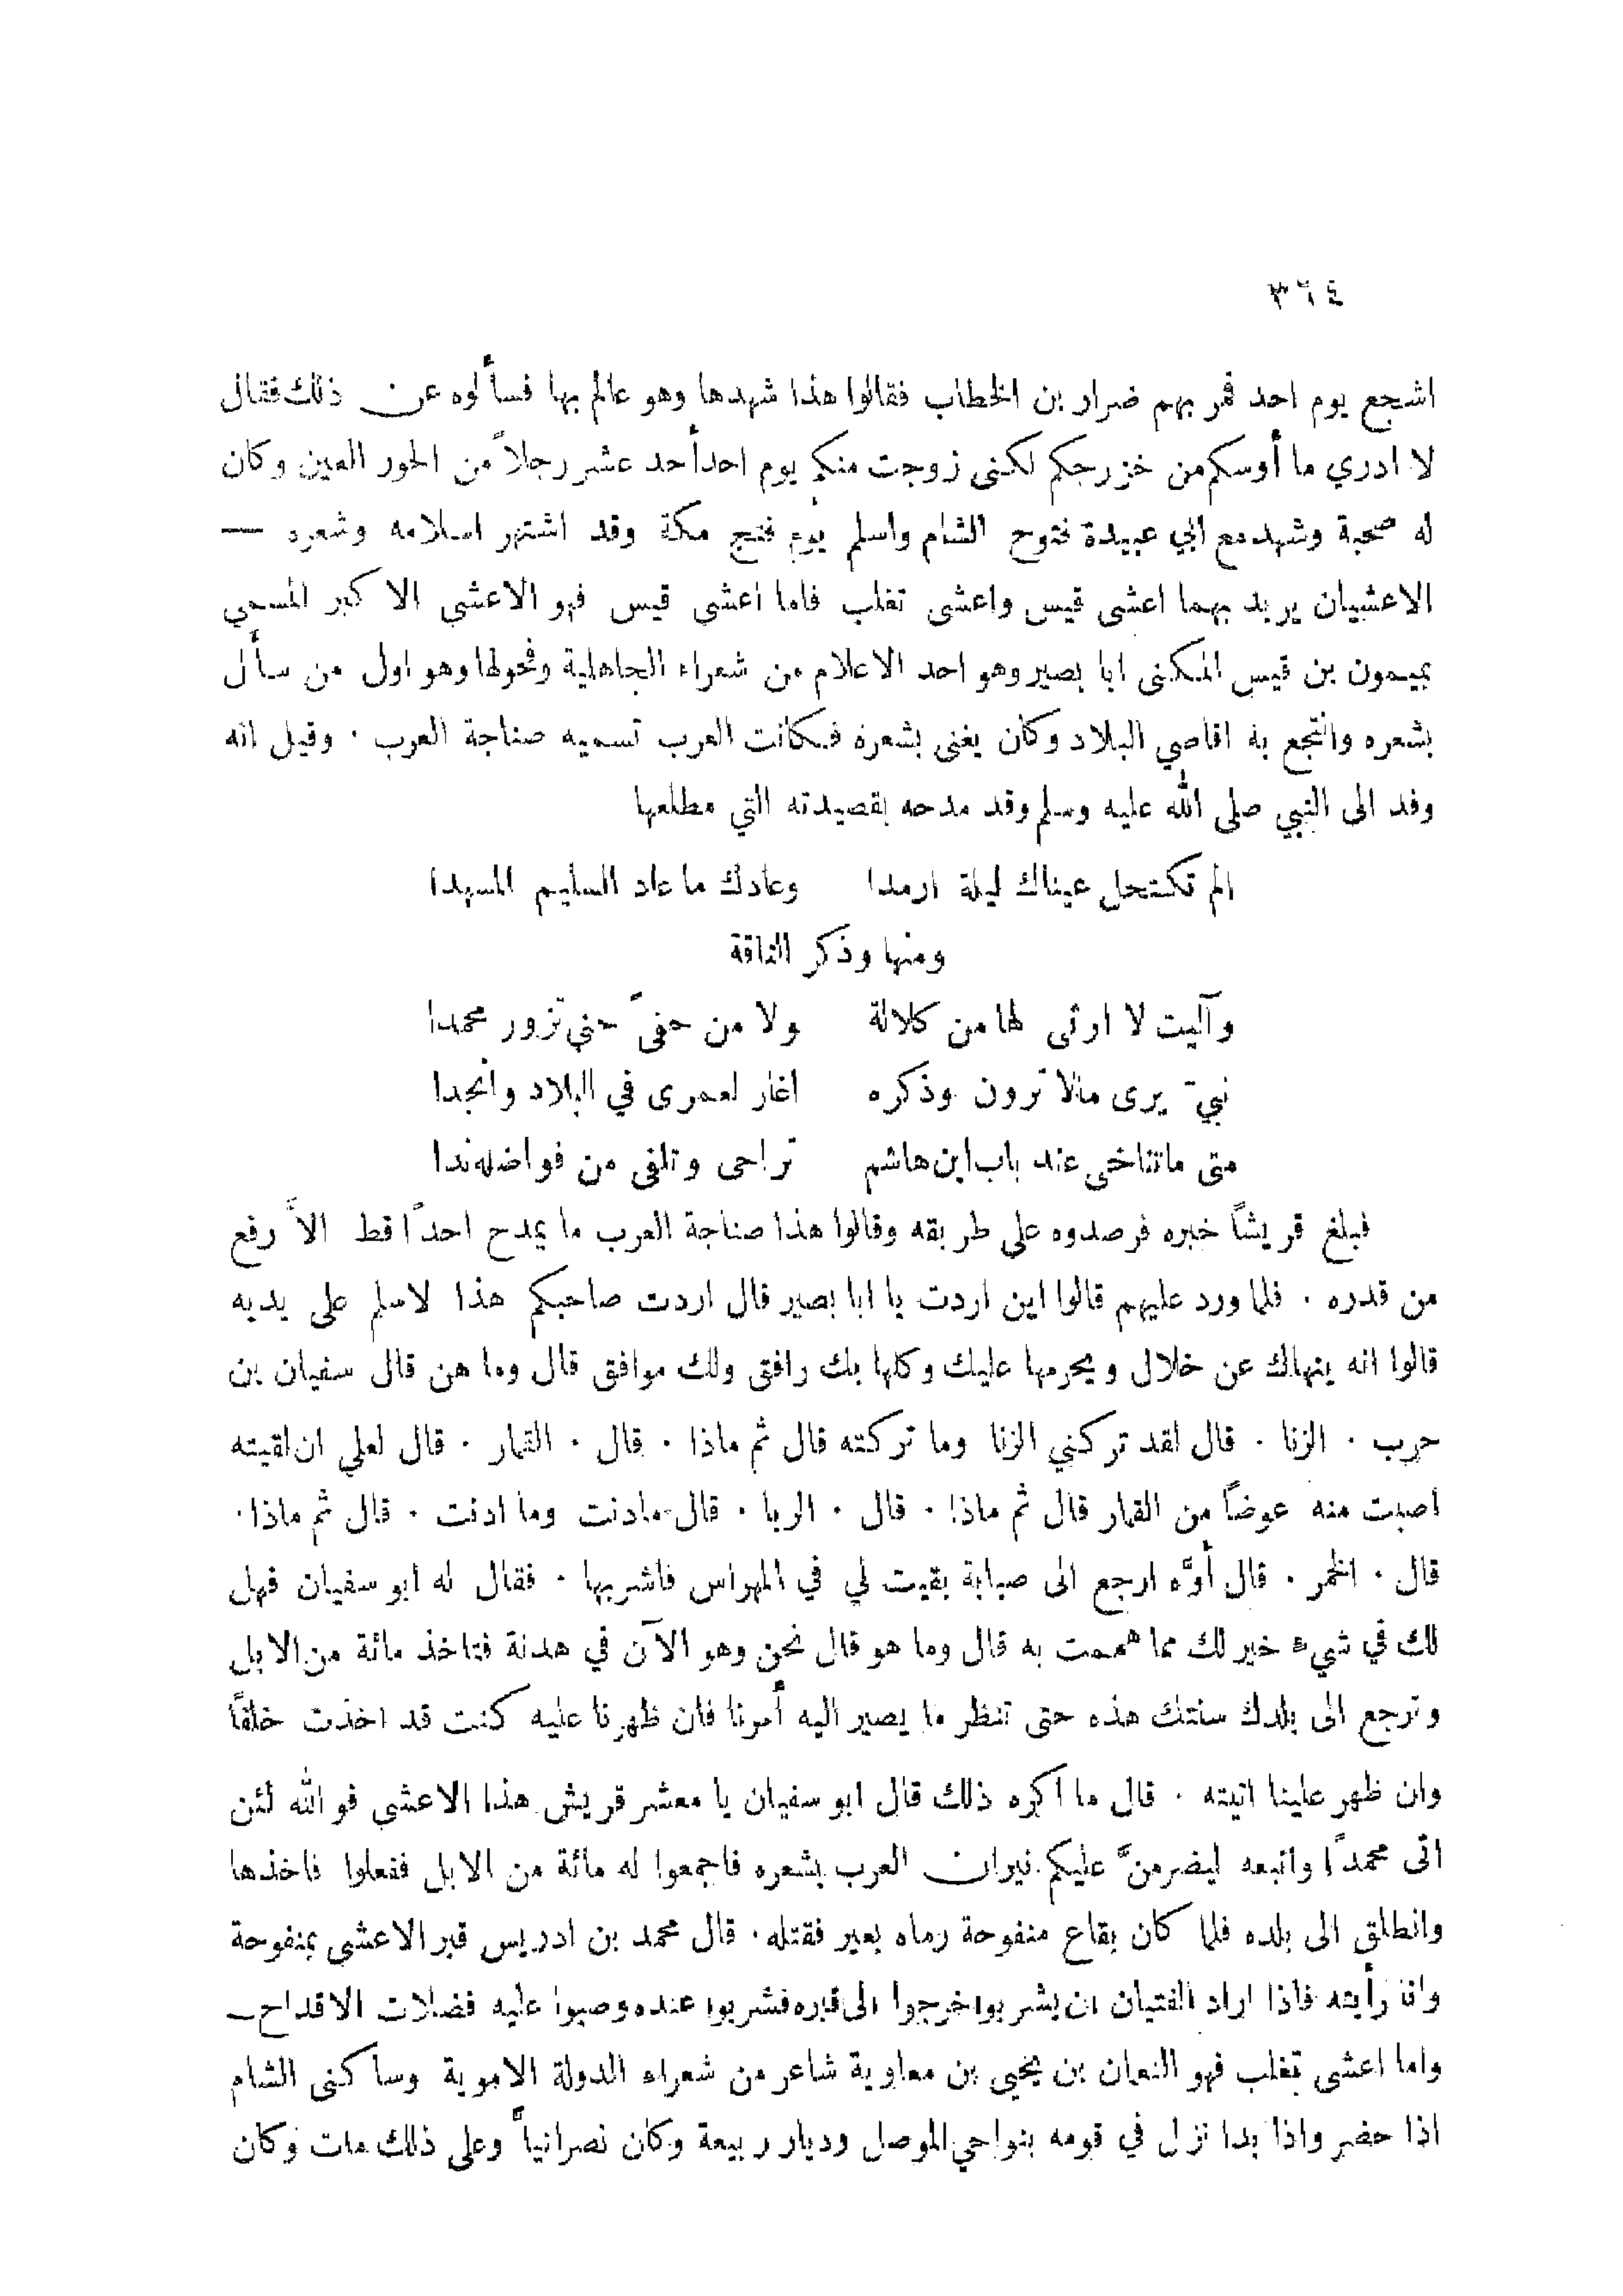 ٣٦٤
اشجع يوم احد فمر بهم ضرار بن الخطاب فقالوا هذا شهدها وهو عالم بها فسألوه عن ذلك فقال
لا ادري ما أوسكم من خزرجكم لكنى زوجت منكم يوم احد أحد عشر رجلاً من الحور العين وكان
له صحبة وشهد مع ابي عبيدة فتوح الشام واسلم يوم فتح مكة وقد اشتهر اسلامه وشعره —
الاعشيان يريد بهما اعشى قيس واعشى تغلب فاما اعشى قيس فهو الاعشى الاكبر المسمى
بميمون بن قيس المكنى ابا بصير وهو احد الاعلام من شعراء الجاهلية وفحولها وهو اول من سأل
بشعره وانتجع به اقاصي البلاد وكان يغنى بشعره فكانت العرب تسميه صناجة العرب . وقيل انه
وفد الى النبي صلى الله عليه وسلم وقد مدحه بقصيدته التي مطلعها
الم تكتحل عيناك ليلة ارمدا وعادك ما عاد السليم المسهدا
ومنها وذكر الناقة
وآليت لا ارثى لها من كلالة ولا من حفىً حتى تزور محمدا
نبيّ يرى مالا ترون وذكره اغار لعمرى في البلاد وانجدا
متى ماتناخى عند باب ابن هاشم تراحى وتلقى من فواضله ندا
فبلغ قريشاً خبره فرصدوه على طريقه وقالوا هذا صناجة العرب ما يمدح احداً قط الاَّ رفع
من قدره . فلما ورد عليهم قالوا اين اردت يا ابا بصير قال اردت صاحبكم هذا لاسلم على يديه
قالوا انه ينهاك عن خلال ويحرمها عليك وكلها بك رافق ولك موافق قال وما هن قال سفيان بن
حرب . الزنا . قال لقد تركني الزنا وما تركته قال ثم ماذا . قال . القمار . قال لعلي ان لقيته
اصبت منه عوضاً من القمار قال ثم ماذا . قال . الربا . قال مادنت وما ادنت . قال ثم ماذا .
قال . الخمر . قال أوَّه ارجع الى صبابة بقيت لي في المهراس فاشربها . فقال له ابو سفيان فهل
لك في شيء خير لك مما هممت به قال وما هو قال نحن وهو الآن في هدنة فتاخذ مائة من الابل
وترجع الى بلدك سنتك هذه حتى تنظر ما يصير اليه أمرنا فان ظهرنا عليه كنت قد اخذت خلفاً
وان ظهر علينا اتيته . قال ما اكره ذلك قال ابو سفيان يا معشر قريش هذا الاعشى فو الله لئن
اتى محمداً واتبعه ليضرمنَّ عليكم نيران العرب بشعره فاجمعوا له مائة من الابل ففعلوا فاخذها
وانطلق الى بلده فلما كان بقاع منفوحة رماه بعير فقتله . قال محمد بن ادريس قبر الاعشى بمنفوحة
وانا رأيته فاذا اراد الفتيان ان يشربوا خرجوا الى قبره فشربوا عنده وصبوا عليه فضلات الاقداح —
واما اعشى تغلب فهو النعمان بن يحيى بن معاوية شاعر من شعراء الدولة الاموية وساكنى الشام
اذا حضر واذا بدا نزل في قومه بنواحي الموصل وديار ربيعة وكان نصرانياً وعلى ذلك مات وكان